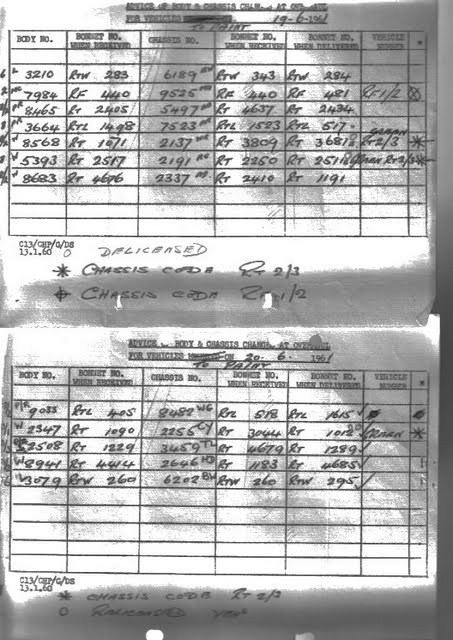 ADVICE OF BODY & CHASSIS CHANGE AT OVERHAUL
FOR VEHICLES 19-6-1961
TO PAINT
BODY NO. BONNET NO. WHEN RECEIVED CHASSIS NO. BONNET NO. WHEN RECEIVED BONNET NO. WHEN DELIVERED VEHICLE NUMBER *
3210 RTW 283 6189 RTW 343 RTW 284
7984 RF 440 9525 RF 440 RF 481 RF1/2
8465 RT 2405 5497 RT 4637 RT 2434
3664 RTL 1498 7523 RTL 1523 RTL 517
8568 RT 1071 2137 RT 3809 RT 3681 RT2/3 *
5393 RT 2517 2191 RT 2250 RT 2511 RT 2/3 *
8683 RT 4676 2337 RT 2410 RT 1191
C13/GHP/G/DS
13.1.60 O DELICENSED
* CHASSIS CODE RT 2/3
CHASSIS CODE RF 1/2
ADVICE BODY & CHASSIS CHANGE AT OVERHAUL
FOR VEHICLES ON 20-6-1961
TO PAINT
BODY NO. BONNET NO. WHEN RECEIVED CHASSIS NO. BONNET NO. WHEN RECEIVED BONNET NO. WHEN DELIVERED VEHICLE NUMBER *
9033 RTL 405 8482 WG RTL 518 RTL 1615
W 2347 RT 1090 2255 CY RT 3044 RT 1012 *
2508 RT 1229 3459 TL RT 4679 RT 1289
W 8941 RT 4414 2646 HD RT 1183 RT 4685
W 3079 RTW 260 6202 BW RTW 260 RTW 295
C13/GHP/G/DS
13.1.60
* CHASSIS CODE RT 2/3
O RELICENSED